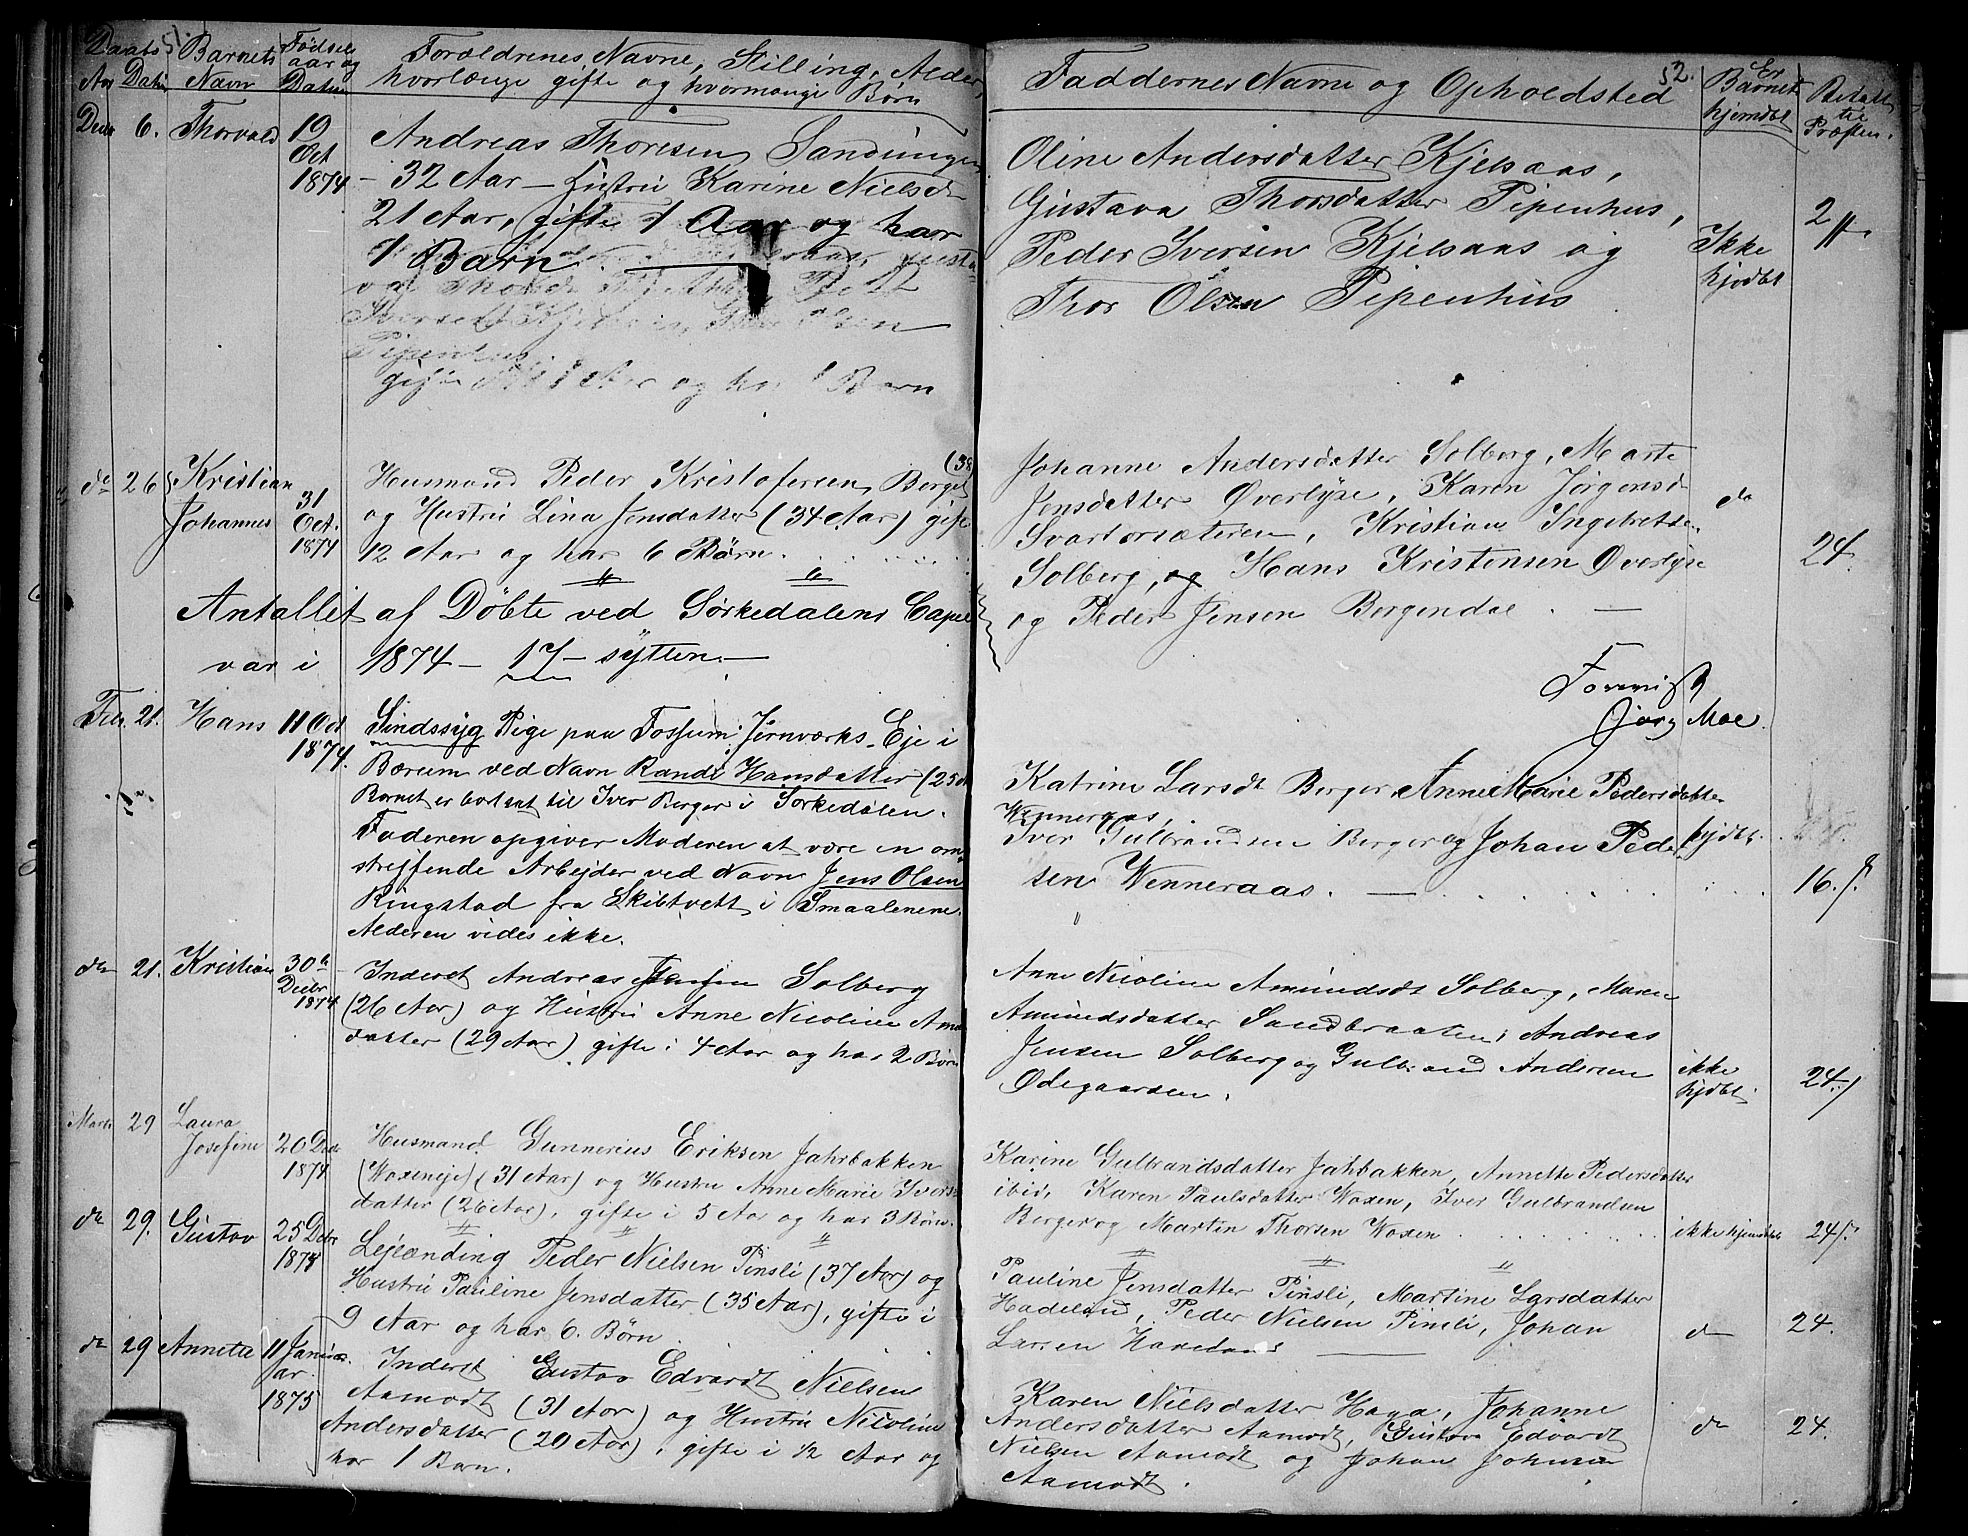 51.
Daabs Barnets Fødsels Forældrenes Navne, Stilling, Alder,
Aar Datum Navn aar og Datum hvorlænge gifte og hvormange Børn
Decbr 6. Thorvald 19 Oct 1874 Andreas Thoresen Sandungen
– 32 Aar – Hustru Karine Nielsd
21 Aar, gifte 1 Aar og har
1 Barn.
Iversen Olsen
Pipenhus
gifte Aar og har 1 Barn
do 26 Kristian Johannes 31 Oct. 1874 Husmand Peder Kristofersen Berget (38
og Hustru Lina Jensdatter (34 Aar) gift
12 Aar og har 6 Børn.
Antallet af Døbte ved Sørkedalens Capel
var i 1874 – 17 – sytten. –
Feb. 21. Hans 11 Oct 1874. Sindssyg Pige paa Fossum Jernværks Eje i
Bærum ved Navn Randi Hansdatter (25
Barnet er bortsat til Iver Berger i Sørkedalen.
Faderen opgiver Moderen at være en om-
streffende Arbejder ved Navn Jens Olsen
Ringstad fra Skibtvett i Smaalenene.
Alderen vides ikke.
do 21. Kristian 30te Decbr 1874 Inderst Andreas Jensen Solberg
(26 Aar) og Hustru Anne Nicoline Am
datter (29 Aar) gifte i 4 Aar og har 2 Børn
Marts 29 Laura Josefine 20 Decbr 1874 Husmand Gunnerius Eriksen Jahrbakken
(Woxeneje) (31 Aar) og Hustru Anne Marie Ivers
datter (26 Aar), gifte i 5 Aar og har 3 Børn.
do 29. Gustav 25 Decbr 1874 Lejlænding Peder Nielsen Pinsli (37 Aar) og
Hustru Pauline Jensdatter (35 Aar), gifte i
9 Aar og har 6. Børn.
do 29 Annette 11 Januar 1875 Inderst Gustav Edvardt Nielsen
Aamodt (31 Aar) og Hustru Nicoline
Andersdatter (20 Aar), gifte i 1/2 Aar og
har 1 Barn.
52.
Faddernes Navne og Opholdsted Er Barnet hjemdøbt Betalt til Præsten.
Oline Andersdatter Kjelsaas,
Gustava Thorsdatter Pipenhus,
Peder Iversen Kjelsaas og Ikke hjdbt
Thor Olsen Pipenhus
Johanne Andersdatter Solberg, Marte
Jensdatter Øverlyse, Karen Jørgensd do
Svartorsæteren, Kristian Ingebretsen
Solberg, og Hans Kristensen Øverlyse 24.
og Peder Jensen Bergendal. –
Forevist
Jørg Moe.
Katrine Larsdt Berger, Anne Marie Pedersdatter
Wenneraas,
Iver Gulbrandsen Berger og Johan Peder- hjdbt.
sen Wenneraas. – 16.
Anne Nicoline Amundsdt Solberg, Maren
Amundsdatter Sandbraaten, Andreas
Jensen Solberg og Gulbrand Andersen ikke hjdbt. 24.
Ødegaarden.
Karine Gulbrandsdatter Jahrbakken, Annette Pedersdatter
ibid, Karen Paulsdatter Woxen, Iver Gulbrandsen
Berger og Martin Thorsen Woxen ikke hjemdøbt 24.
Pauline Jensdatter Pinsli, Martine Larsdatter
Hadeland, Peder Nielsen Pinsli, Johan
Larsen do 24.
Karen Nielsdatter Haga, Johanne
Andersdatter Aamodt, Gustav Edvardt do 24.
Nielsen Aamodt og Johan Johnsen
Aamodt.